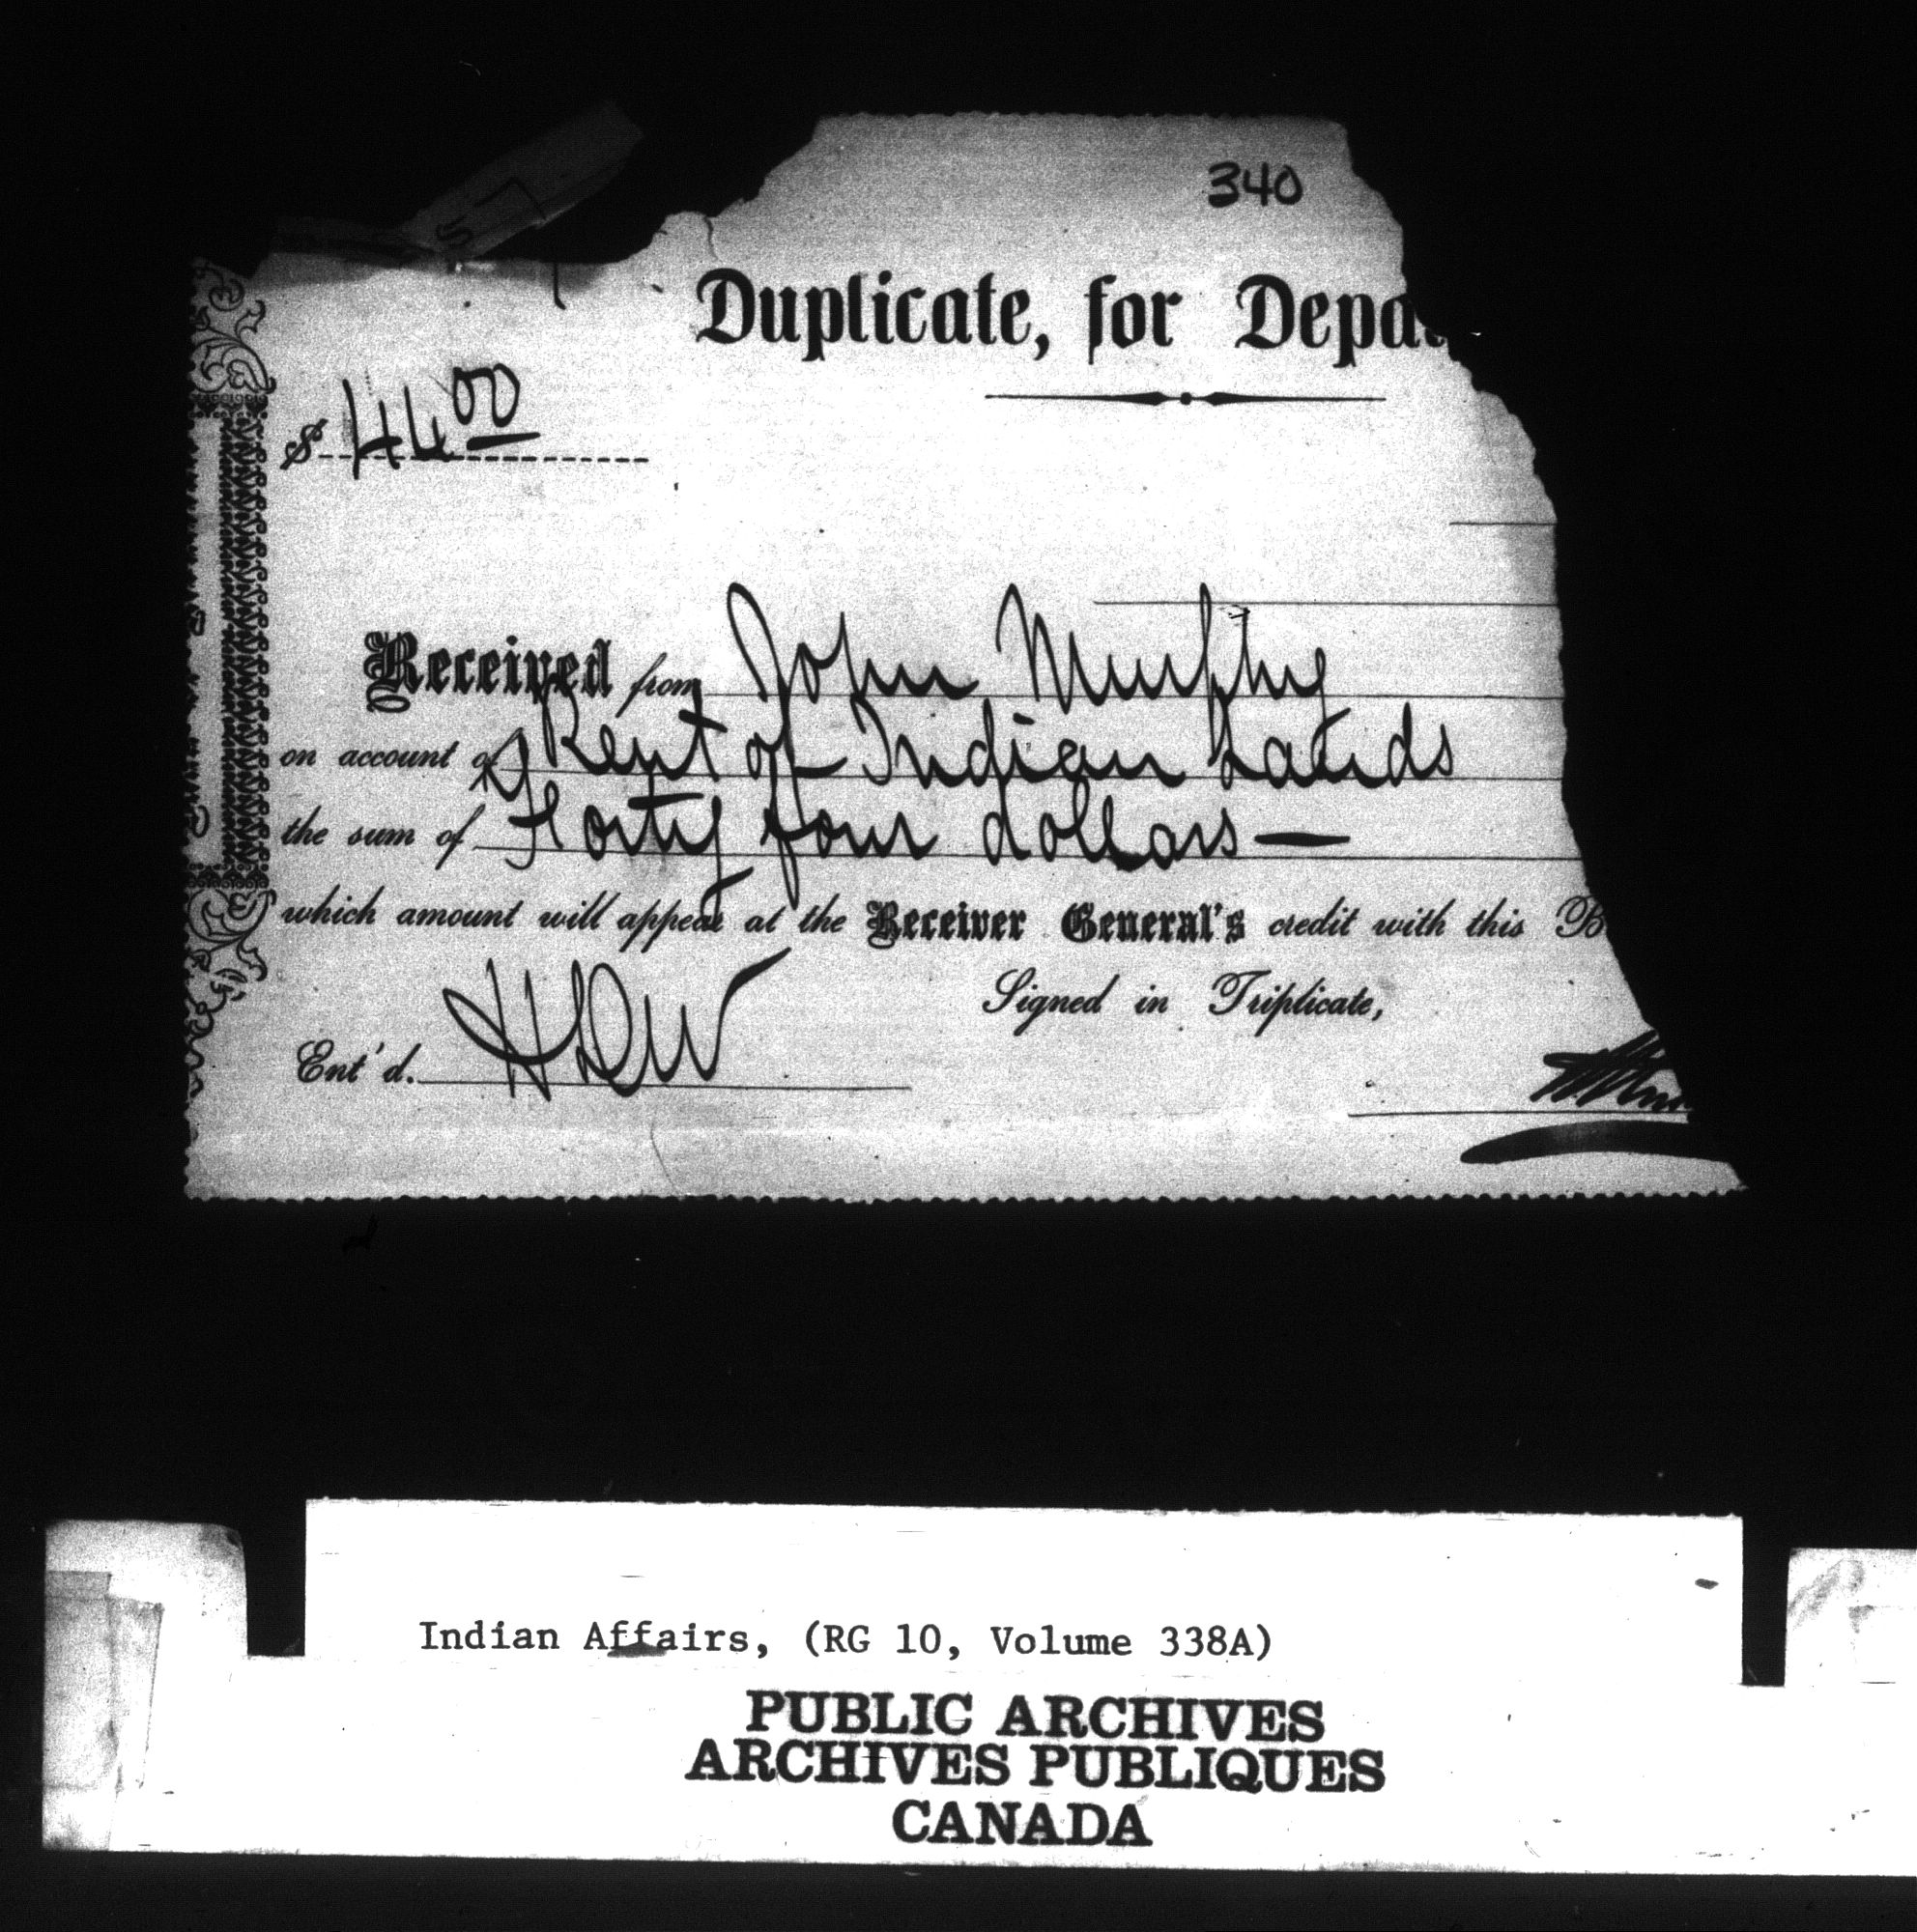 340
Duplicate, for Depa
$ 44 00
Received from John Murphy
on account of Rent of Indian Lands
the sum of Forty four dollars —
which amount will appear at the Receiver General's credit with this B
Signed in Triplicate,
Ent'd.
Indian Affairs, (RG 10, Volume 338A)
PUBLIC ARCHIVES
ARCHIVES PUBLIQUES
CANADA